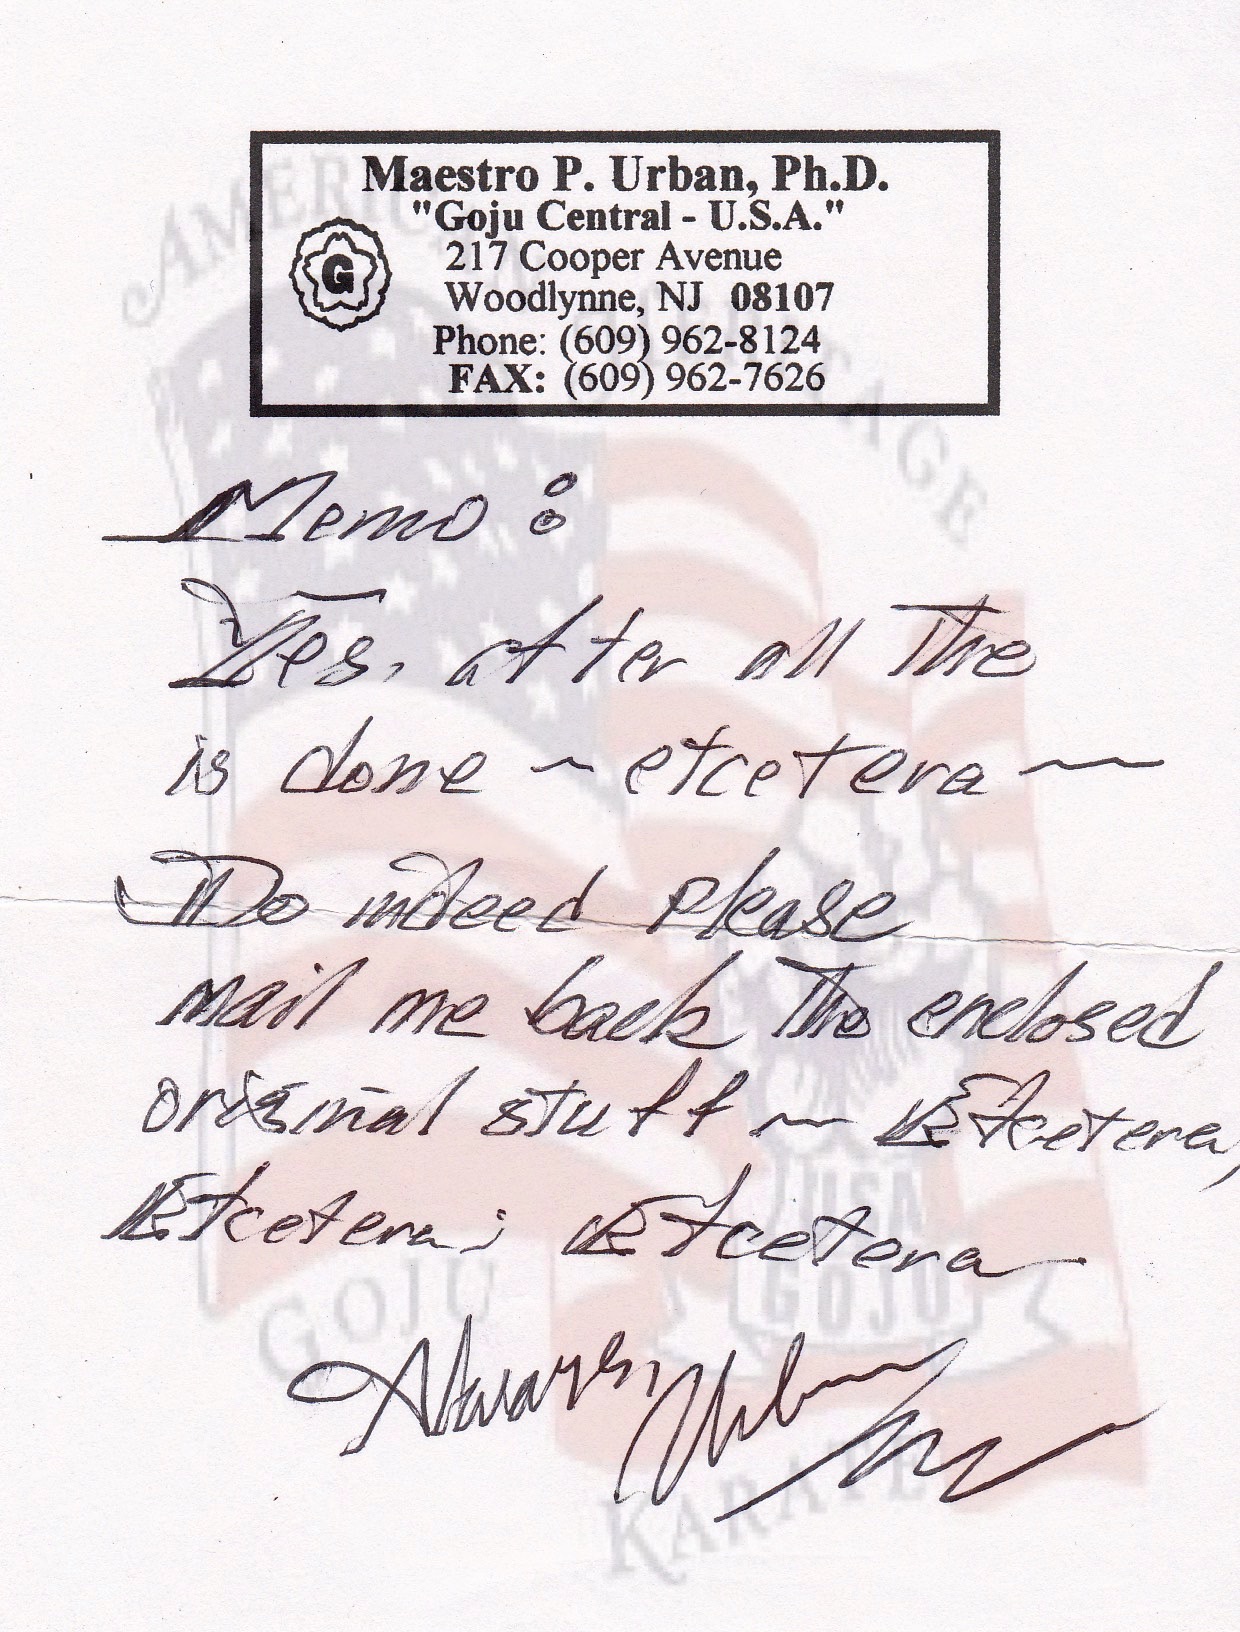 Maestro P. Urban, Ph.D.
"Goju Central - U.S.A."
G
217 Cooper Avenue
Woodlynne, NJ 08107
Phone: (609) 962-8124
FAX: (609) 962-7626
AMERICAN AGE
Memo:
Yes, after all the
is done ~ etcetera ~
Do indeed please
mail me back the enclosed
original stuff ~ Etcetera,
Etcetera; Etcetera
USA
GOJU
GOJU
Always, Urban
KARATE